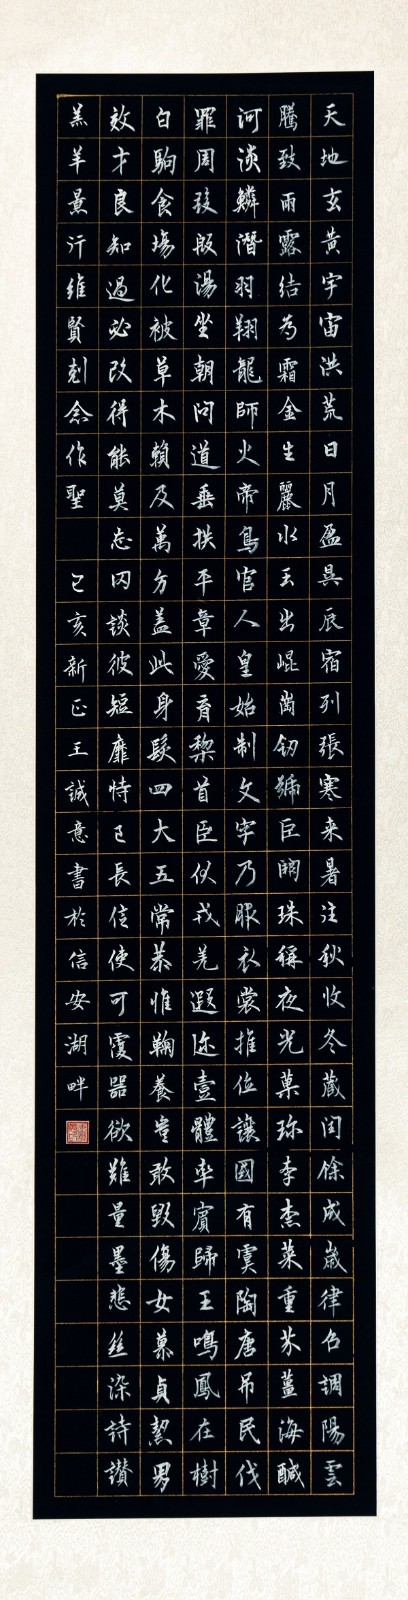 天地玄黃宇宙洪荒日月盈昃辰宿列張寒来暑往秋收冬藏閏餘成歲律呂調陽雲
騰致雨露結為霜金生麗水玉出崐崗劒號巨闕珠稱夜光菓珍李柰菜重芥薑海醎
河淡鱗潛羽翔龍師火帝鳥官人皇始制文字乃服衣裳推位讓國有虞陶唐吊民伐
罪周發殷湯坐朝問道垂拱平章愛育黎首臣伏戎羌遐迩壹體率賓歸王鳴鳳在樹
白駒食場化被草木賴及萬方蓋此身髮四大五常恭惟鞠養豈敢毀傷女慕貞絜男
效才良知過必改得能莫忘罔談彼短靡恃己長信使可覆器欲難量墨悲丝染詩讃
羔羊景行維賢剋念作聖 己亥新正王誠意書於信安湖畔